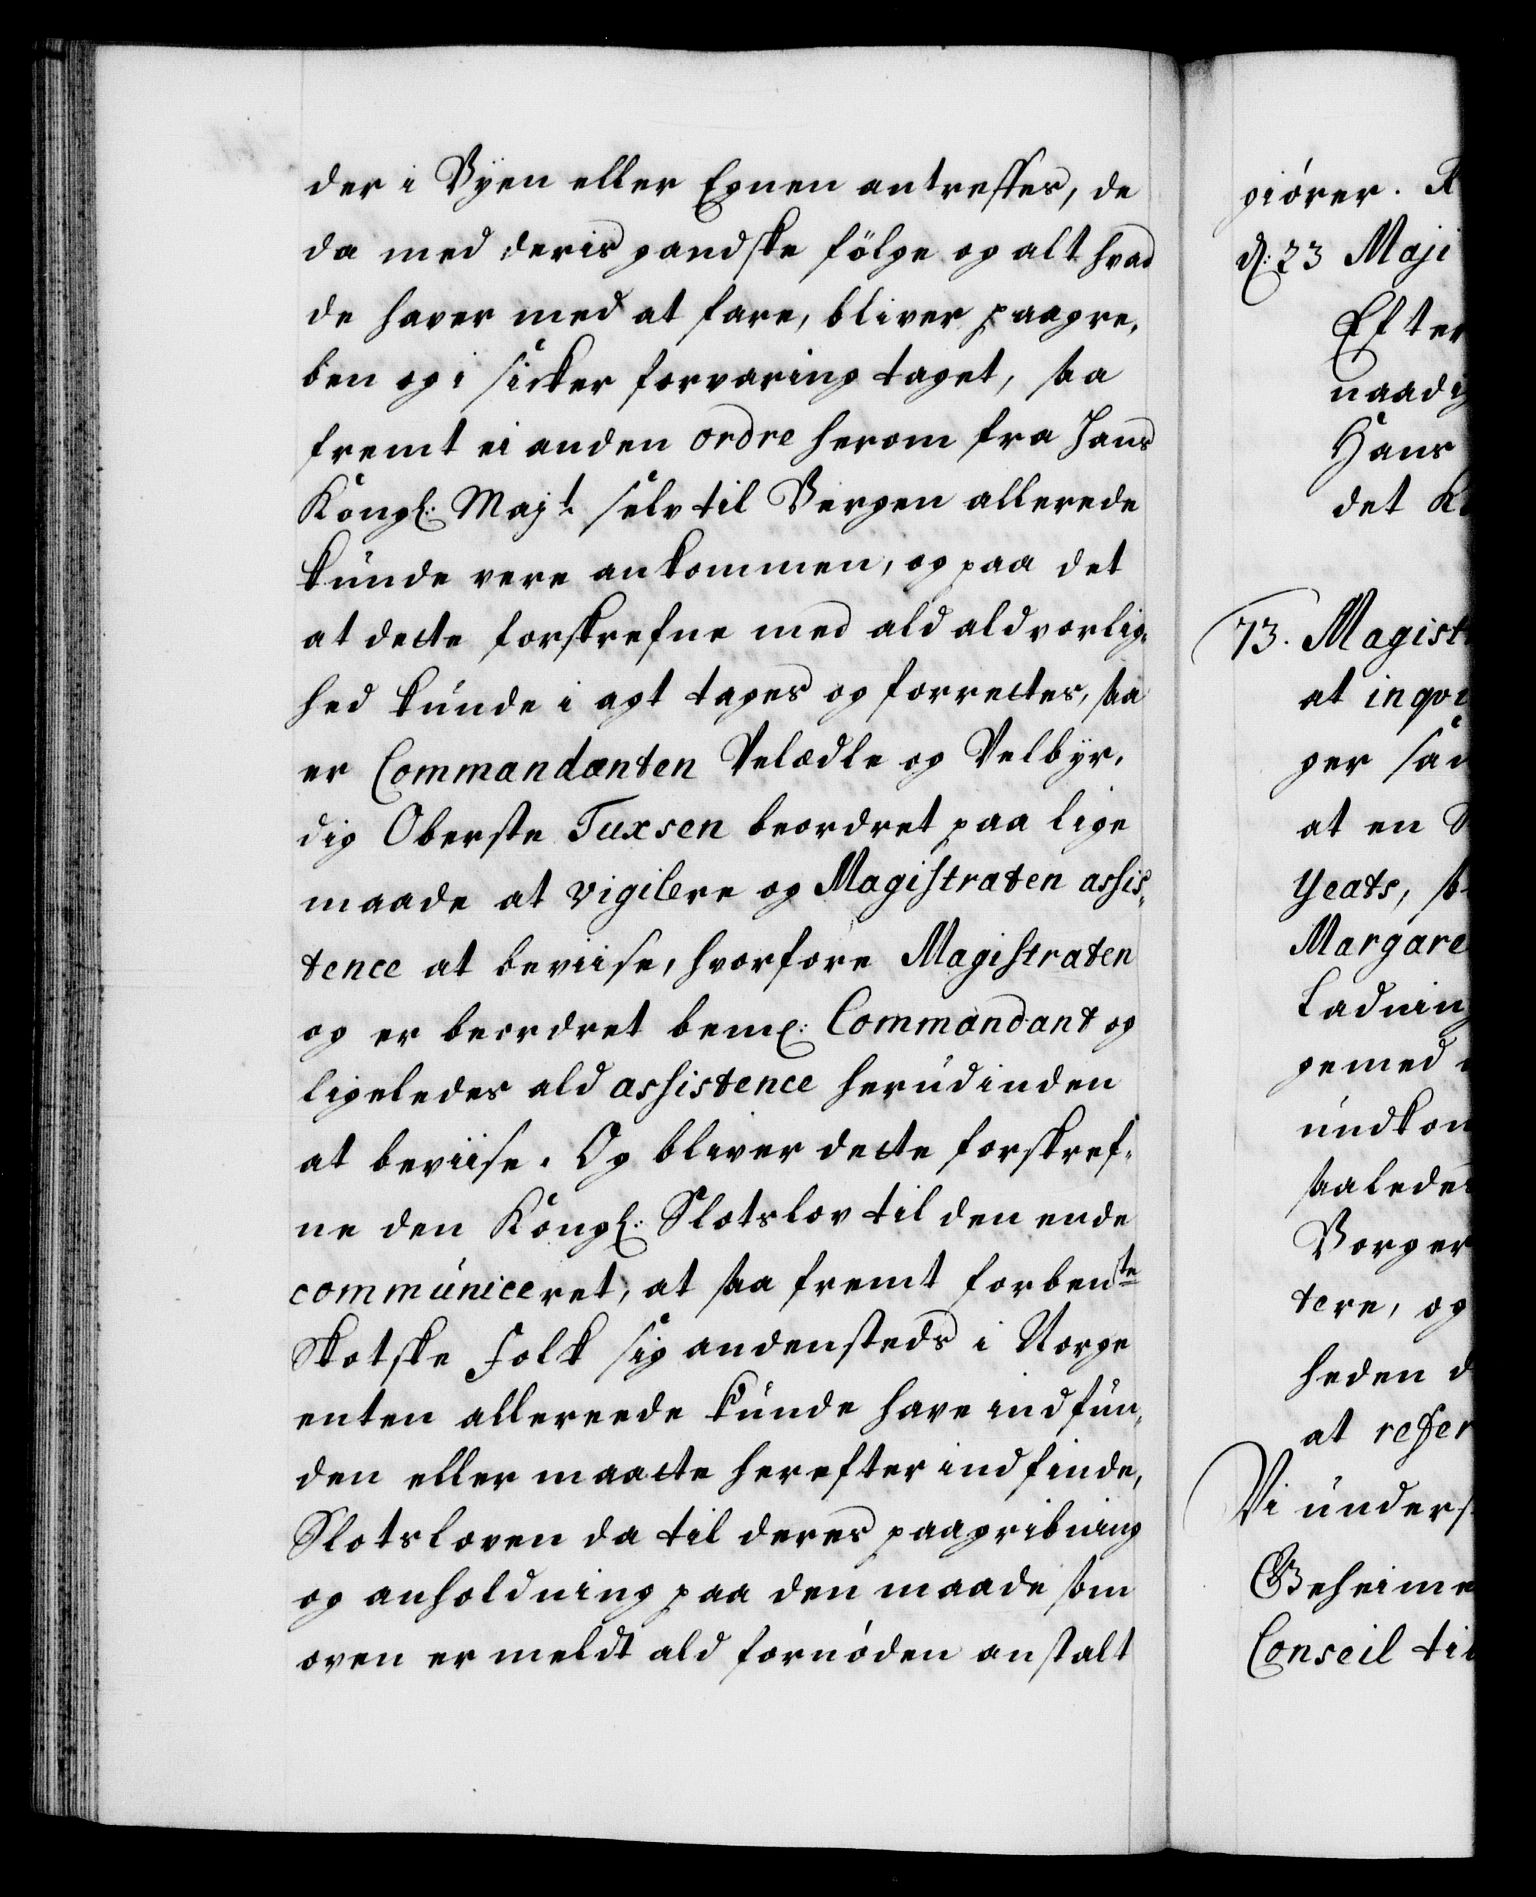 der i Byen eller Egnen antreffes, de
da med deris gandske fölge og alt hvad
de haver med at fare, bliver paagre,
ben og i sicker forvaring taget, saa
fremt ei anden ordre herom fra Hans
Kongl: Majt. selv til Bergen allerede
kunde vere ankommen, og paa det
at dette forskrefne med ald aldvorlig,
hed kunde i agt tages og forrettes, saa
er Commandanten Velædle og Velbyr,
dig Oberste Tuxsen beordret paa lige
maade at vigilere og Magistraten assis,
tence at beviise, hvorfore Magistraten
og er beordret bem: Commandant og
ligeledes ald assistence herudinden
at beviise. Og bliver dette forskref,
ne den Kongl: Slotslov til den ende
communiceret, at saa fremt forbente
Skotske Folk sig andensteds i Norge
enten allereede kunde have indfun,
den eller maatte herefter indfinde,
Slotsloven da til deres paagribning
og anholdning paa den maade som
oven er meldt ald fornöden anstalt
giörer. R
d: 23 Maji
Efter
naadig
Hans
det K
73. Magist
at inqvi
ger
at en S
Yeats,
Margare
Ladning
gemed
undkom
saaledes
Borger
tere, og
heden d
at refer
Vi unders
Geheime
Conseil til